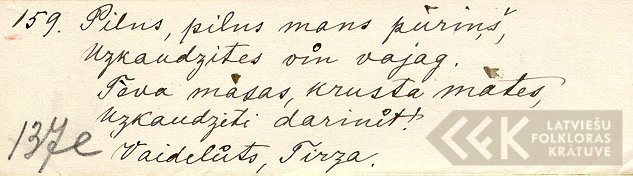 159. Pilns, pilns mans pūriņš,
Uzkaudzītes vin vajag.
Tēva māsas, krusta mātes,
Uzkaudzīti darināt!
137e
Vaidelūts, Tirza.
LATVIEŠU
FOLKLORAS
KRĀTUVE